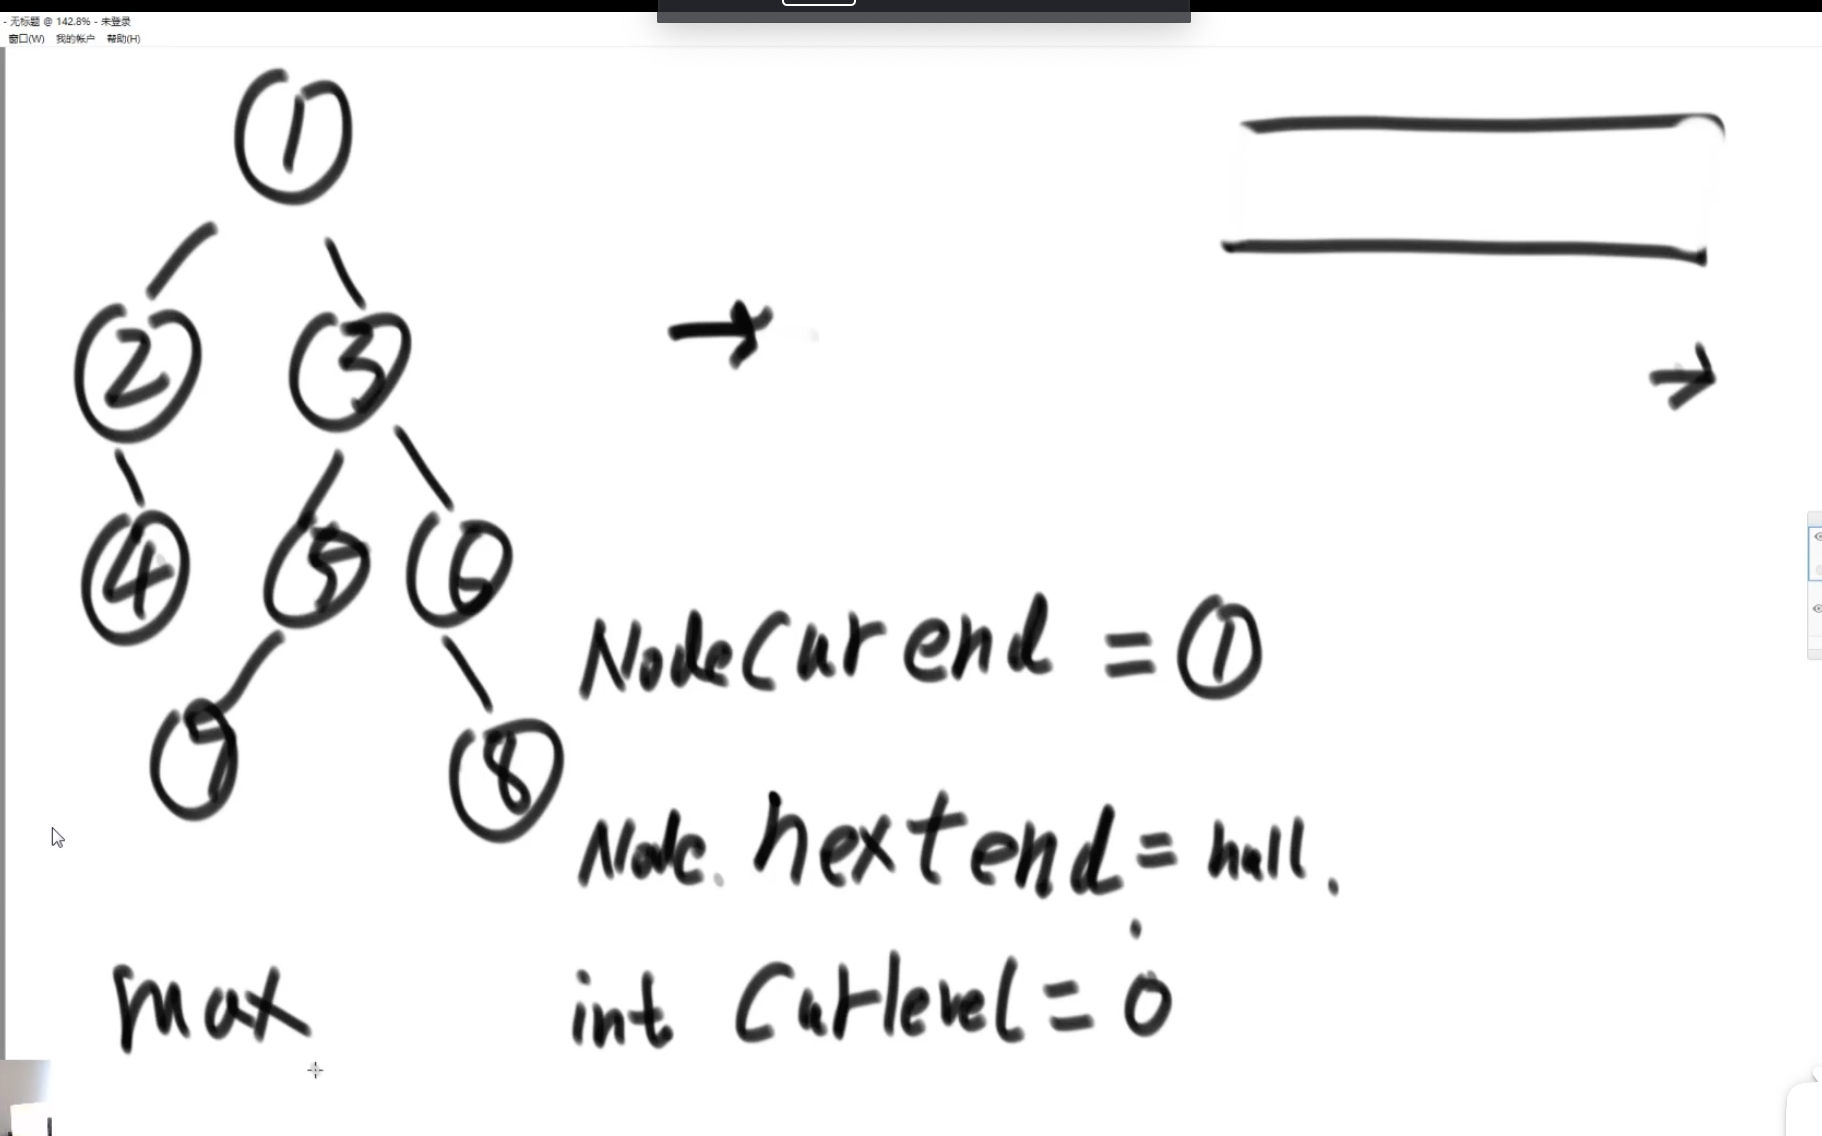 - 无标题 @ 142.8% - 未登录
窗口(W) 我的帐户 帮助(H)
1
2 3
4 5 6
7 8
Node Cur end = 1
Node. nextend = null.
max int Curlevel = 0